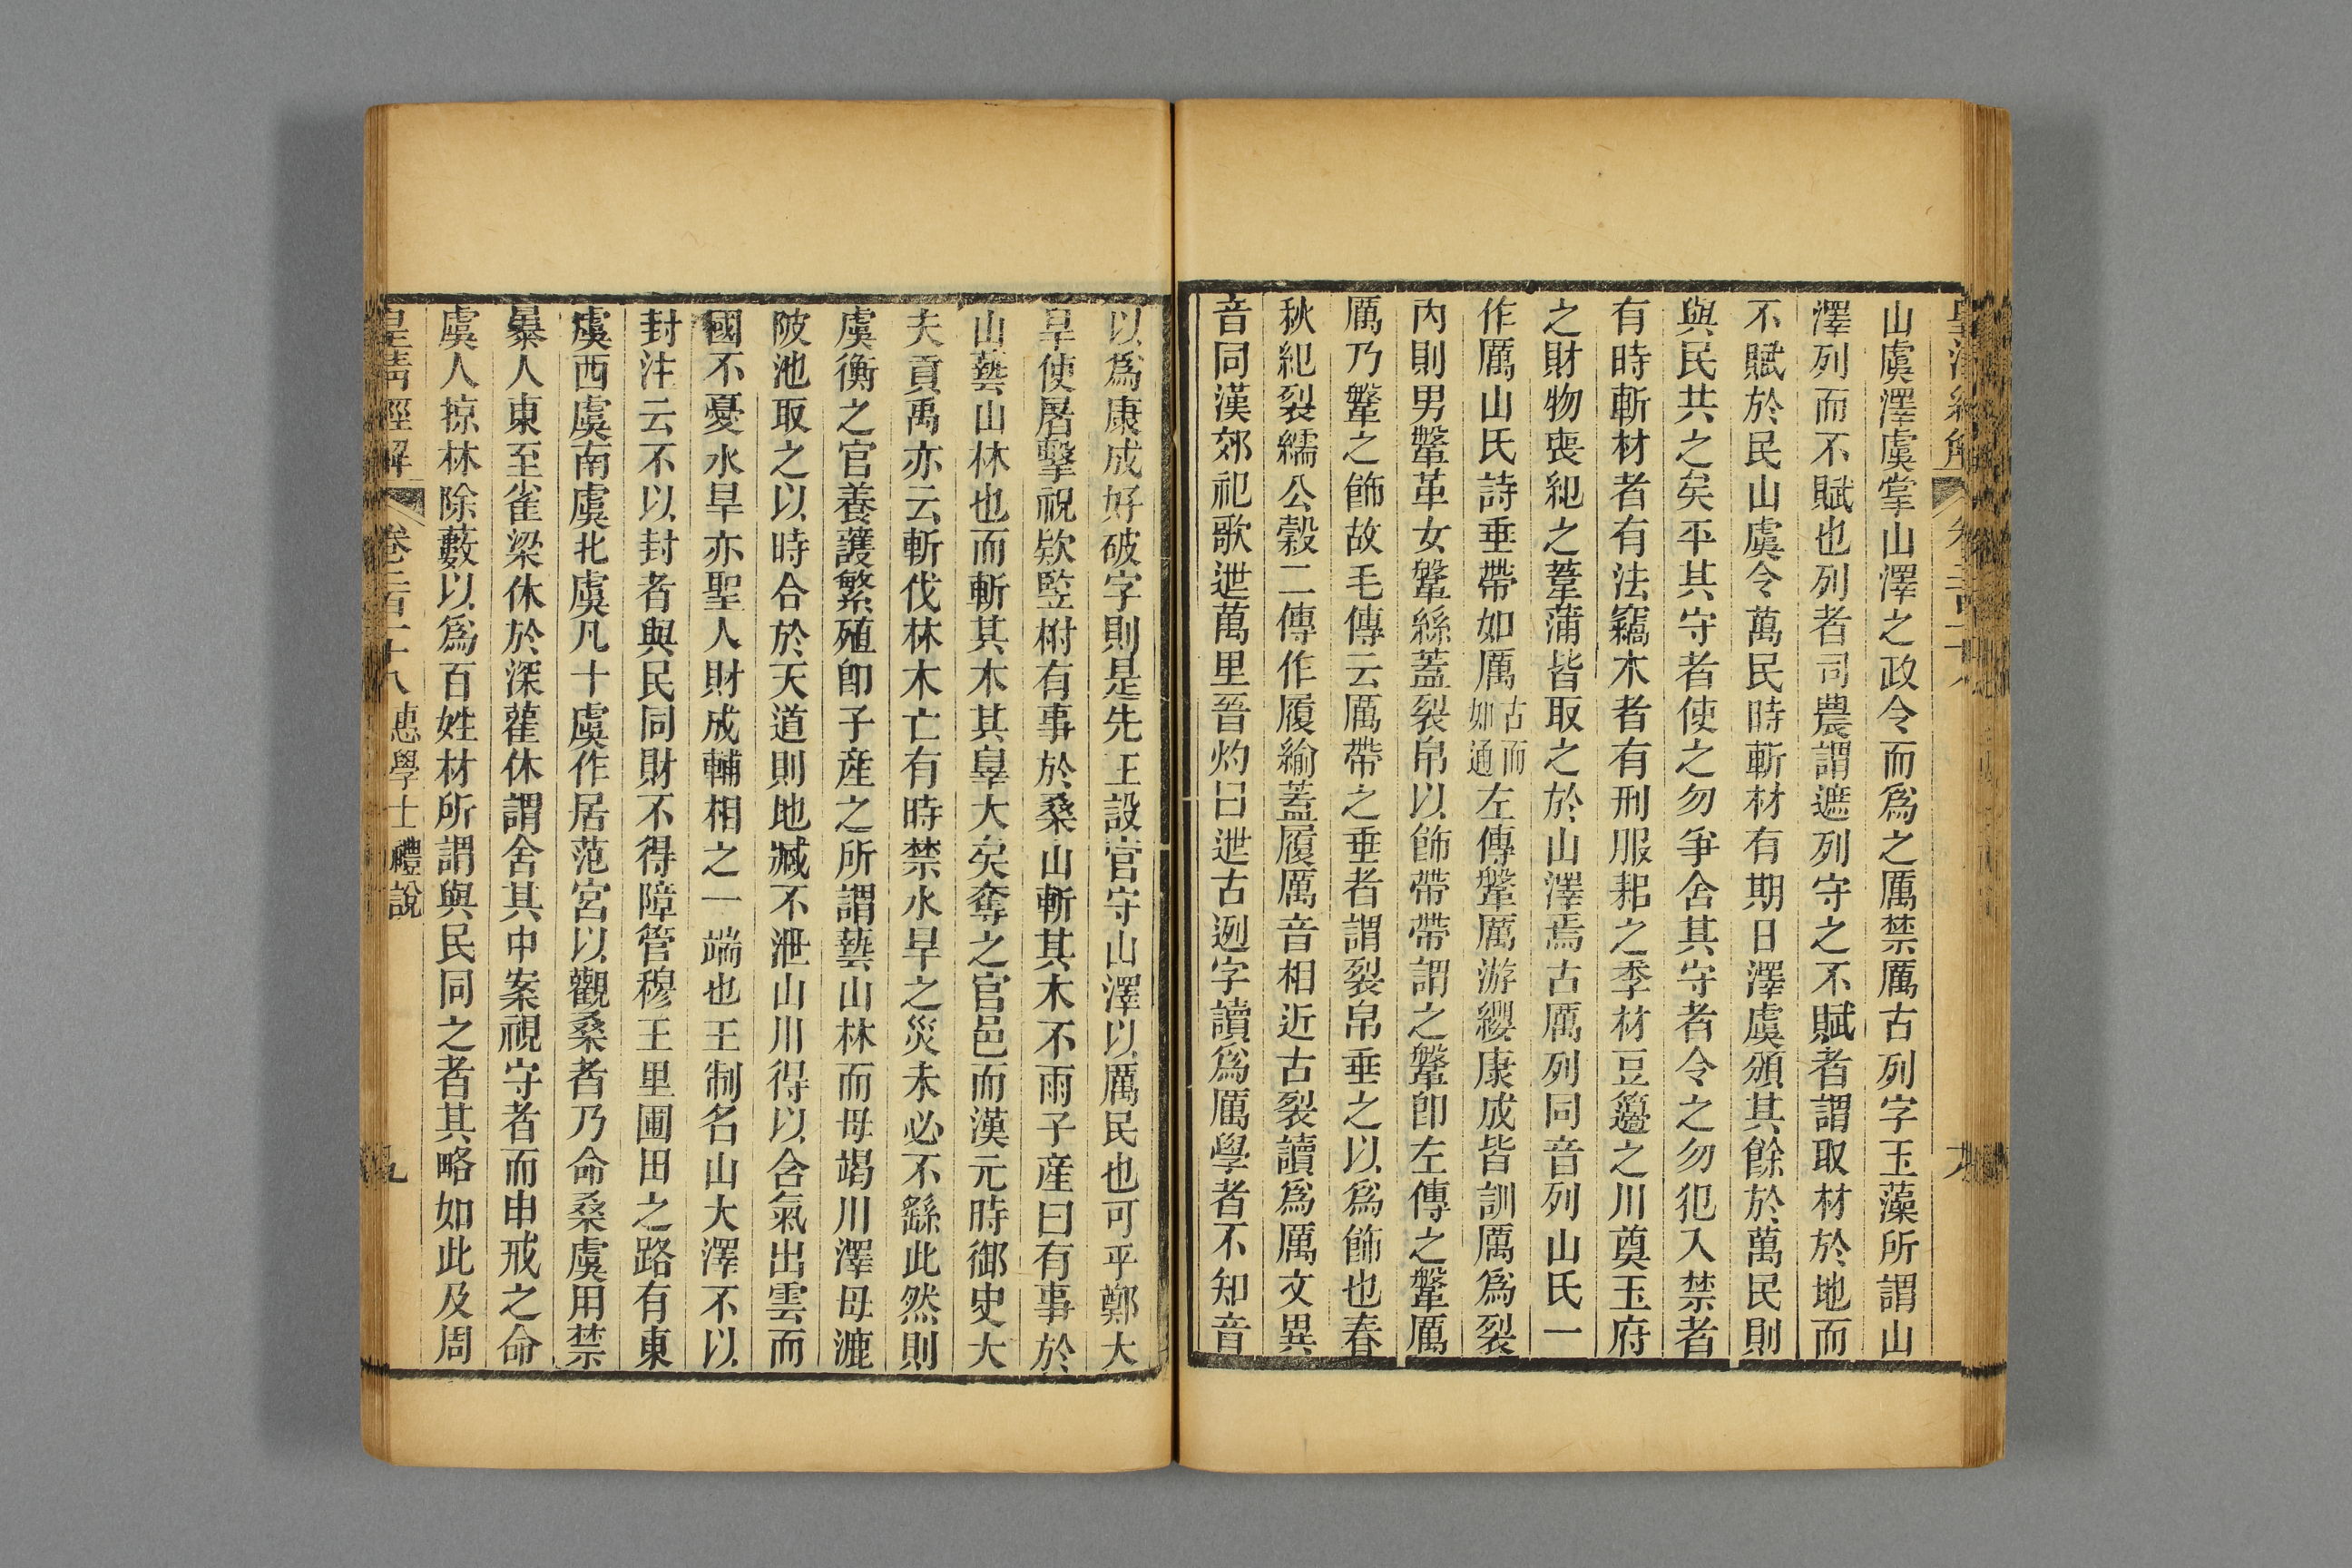 山虞澤虞掌山澤之政令而爲之厲禁厲古列字玉藻所謂山
澤列而不賦也列者司農謂遮列守之不賦者謂取材於地而
不賦於民山虞令萬民時斬材有期日澤虞頒其餘於萬民則
與民共之矣平其守者使之勿爭舍其守者令之勿犯入禁者
有時斬材者有法竊木者有刑服耜之季材豆籩之川奠玉府
之財物喪紀之葦蒲皆取之於山澤焉古厲列同音列山氏一
作厲山氏詩垂帶如厲古而如通左傳鞶厲游纓康成皆訓厲爲裂
內則男鞶革女鞶絲蓋裂帛以飾帶帶謂之鞶卽左傳之鞶厲
厲乃鞶之飾故毛傳云厲帶之垂者謂裂帛垂之以爲飾也春
秋紀裂繻公穀二傳作履緰蓋履厲音相近古裂讀爲厲文異
音同漢郊祀歌迣萬里晉灼曰迣古迾字讀爲厲學者不知音
以爲康成好破字則是先王設官守山澤以厲民也可乎鄭大
旱使屠擊祝款豎柎有事於桑山斬其木不雨子產曰有事於
山藝山林也而斬其木其辠大矣奪之官邑而漢元時御史大
夫貢禹亦云斬伐林木亡有時禁水旱之災未必不繇此然則
虞衡之官養護繁殖卽子產之所謂藝山林而毋竭川澤毋漉
陂池取之以時合於天道則地臧不泄山川得以含氣出雲而
國不憂水旱亦聖人財成輔相之一端也王制名山大澤不以
封注云不以封者與民同財不得障管穆王里圃田之路有東
虞西虞南虞北虞凡十虞作居范宮以觀桑者乃命桑虞用禁
暴人東至雀梁休於深雚休謂舍其中案視守者而申戒之命
虞人掠林除藪以爲百姓材所謂與民同之者其略如此及周
皇清經解 卷二百十八 惠學士禮說 九